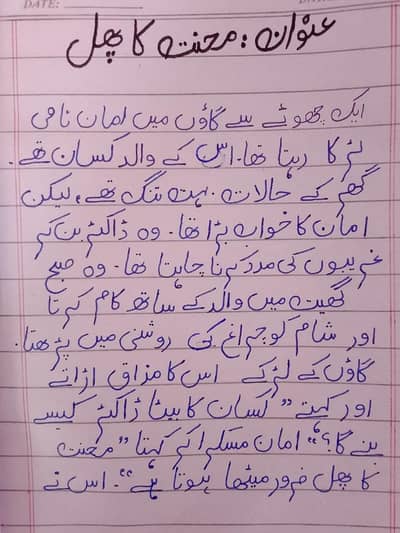 DATE:
عنوان: محنت کا پھل
ایک چھوٹے سے گاؤں میں امان نامی
لڑکا رہتا تھا۔ اس کے والد کسان تھے۔
گھر کے حالات بہت تنگ تھے، لیکن
امان کا خواب بڑا تھا۔ وہ ڈاکٹر بن کر
غریبوں کی مدد کرنا چاہتا تھا۔ وہ صبح
کھیت میں والد کے ساتھ کام کرتا
اور شام کو چراغ کی روشنی میں پڑھتا۔
گاؤں کے لڑکے اس کا مذاق اڑاتے
اور کہتے ”کسان کا بیٹا ڈاکٹر کیسے
بنے گا؟“ امان مسکرا کر کہتا ”محنت
کا پھل ضرور میٹھا ہوتا ہے“۔ اس نے